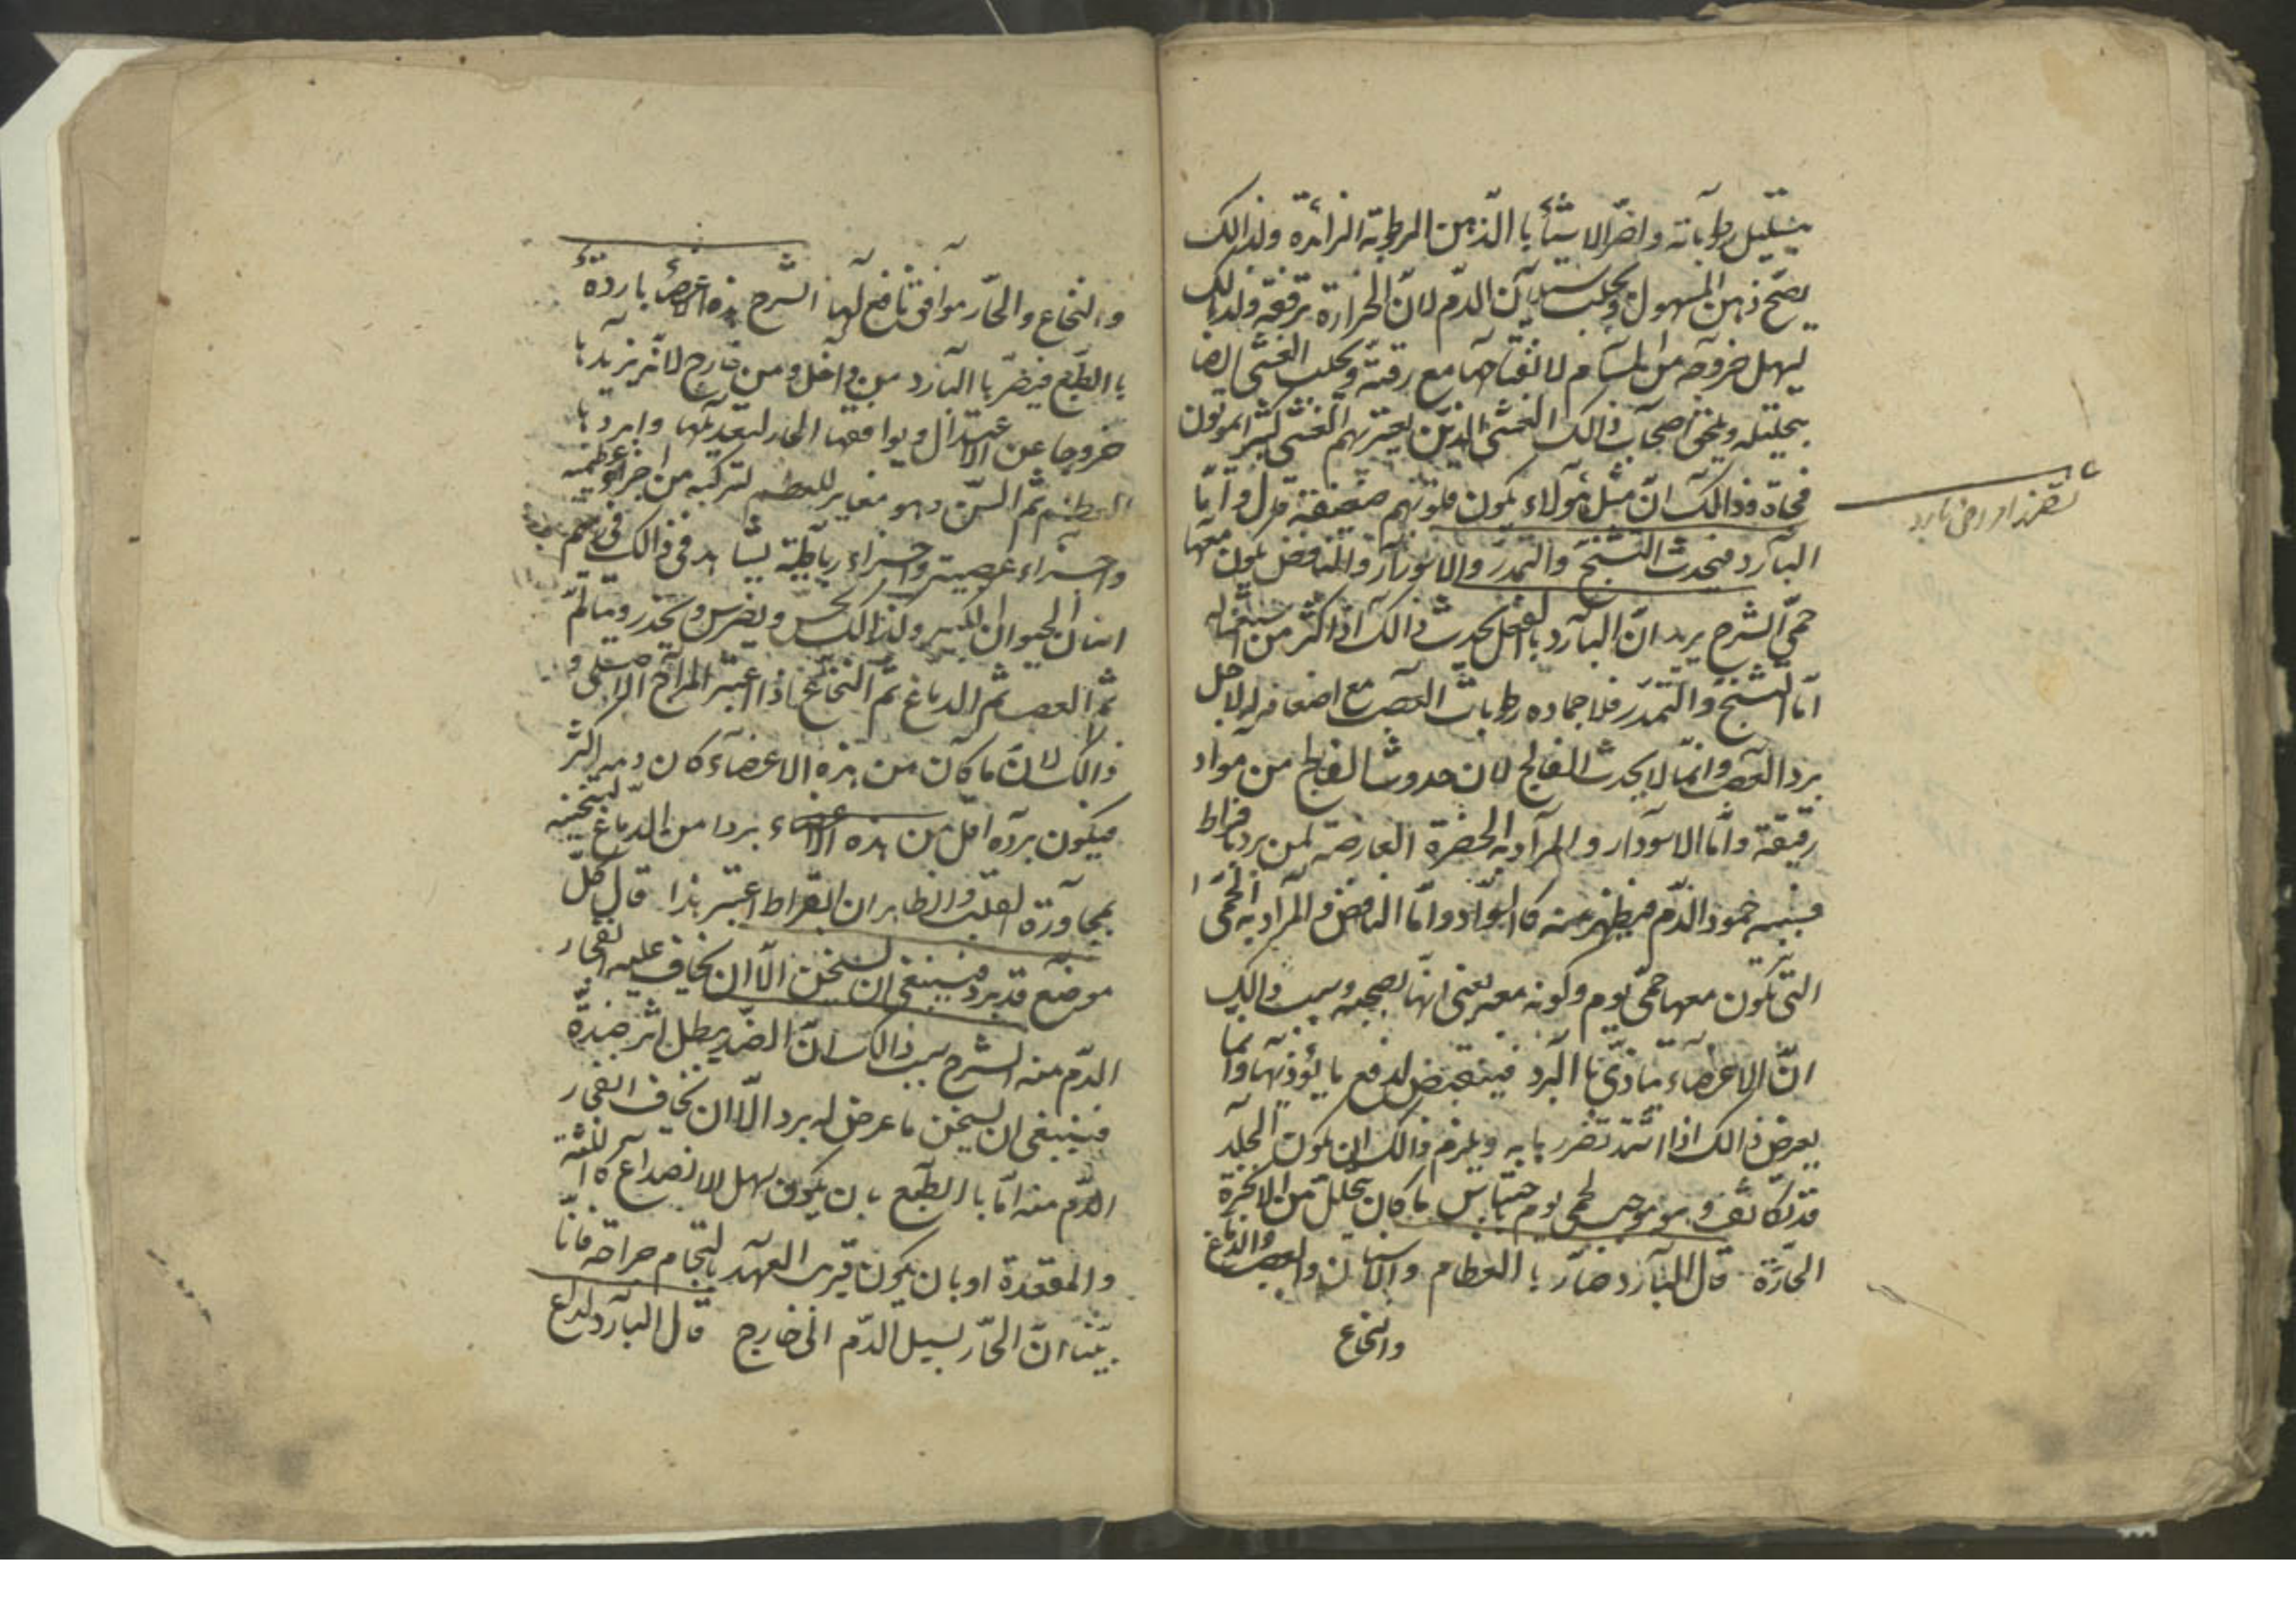 بتقليل رطوباته واضر الاشياء باالذهن الرطوبة الزائدة ولذالك
يصح ذهن المسهول ويجلب سيلان الدم لان الحرارة ترققه ولذالك
يسهل خروجه من المسام لانفتاحها مع رقته ويجلب الغشى ايضا
بتحليله ويلحق اصحاب ذالك الغشى الذين يعتريهم الغشى كثيرا يموتون
فجاة وذالك ان مثل هولاء يكون قلوبهم ضعيفة قال واما
البارد فيحدث التشنج والتمدد والاسوداد والنافض يكون معها
حمى الشرح يريد ان البارد باالفعل يحدث ذالك اذا اكثر من استعماله
اما التشنج والتمدد فلاجماده رطوبات العصب مع اضعافه له لاجل
برد العصب وانما لا يحدث الفالج لان حدوث الفالج من مواد
رقيقة واما الاسوداد والمراد به الخضرة العارضة لمن برد بافراط
فسببه جمود الدم فيظهر منه كاالسواد واما النافض فالمراد به الحمى
التى تكون معها حمى يوم وكونه معه يعنى انها يصحبه وسبب ذالك
ان الاعضاء يتاذى باالبرد فينقبض لدفع ما يؤذيها وانما
يعرض ذالك اذا اشتد تضررها به ويلزم ذالك ان يكون الجلد
قد تكاثف وهو موجب لحمى يوم باحتباس ما كان يتحلل من الابخرة
الحارة قال البارد ضار باالعظام والاسنان والعصب والدماغ
والنخاع
والنخاع والحار موافق نافع لها الشرح هذه الاعضاء باردة
باالطبع فيضر باالبارد من داخل ومن خارج لانه يزيدها
خروجا عن الاعتدال ويوافقها الحار لتعديلها وابردها
العظم ثم السن وهو مغاير للعظم لتركبه من اجزاء عظمية
واجزاء عصبية واجزاء رباطية يشاهد فى ذالك فى
اسنان الحيوان الكبير ولذالك يحس ويضرس ويخدر ويتالم
ثم العصب ثم الدماغ ثم النخاع اذا اعتبر المزاج الاصلى و
ذالك لان ما كان من هذه الاعضاء كان دمه اكثر
فيكون برده اقل من هذه الاعضاء بردا من الدماغ لتسخينه
بمجاورة القلب والظاهر ان ابقراط اعتبر هذا قال كل
موضع قد برد فينبغى ان يسخن الا ان يخاف عليه انفجار
الدم منه الشرح سبب ذالك ان الضد يبطل اثر ضده
فينبغى ان يسخن ما عرض له برد الا ان يخاف انفجار
الدم منه اما باالطبع بان يكون سهل الانصداع كاللثة
والمقعدة او بان يكون قريب العهد بالتحام جراحة فانا
بينا ان الحار يسيل الدم الى خارج قال البارد لذاع